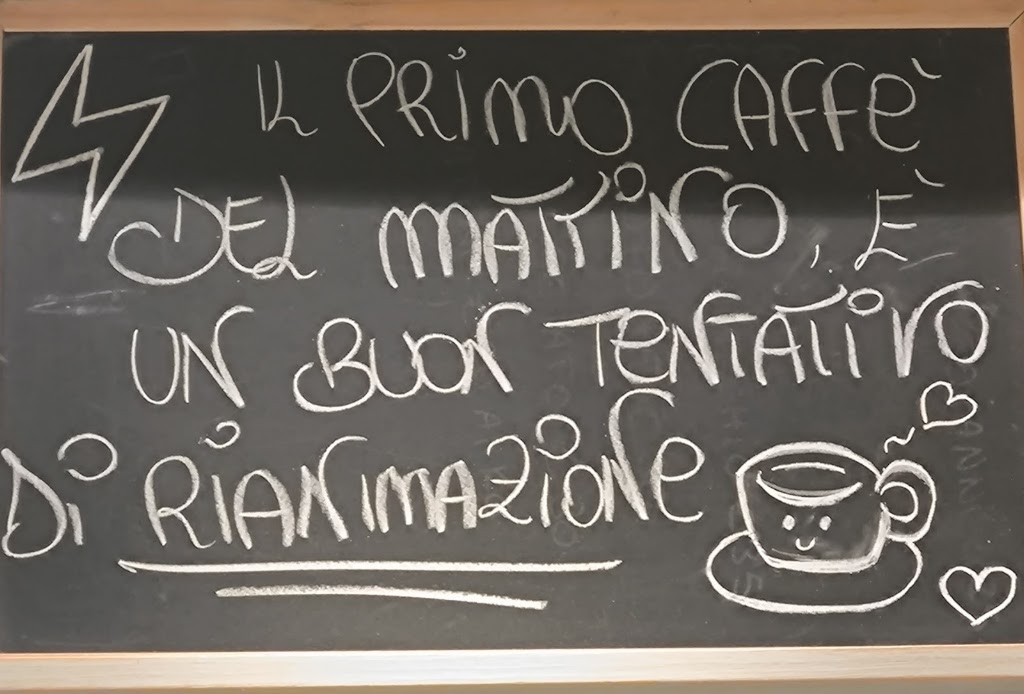 IL PRIMO CAFFÈ
DEL MATTINO, È
UN BUON TENTATIVO
DI RIANIMAZIONE